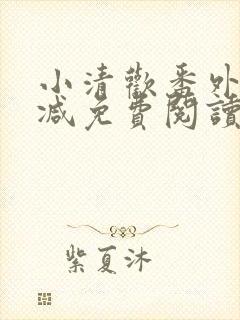 小清歡番外
減免費閱讀
紫夏沐